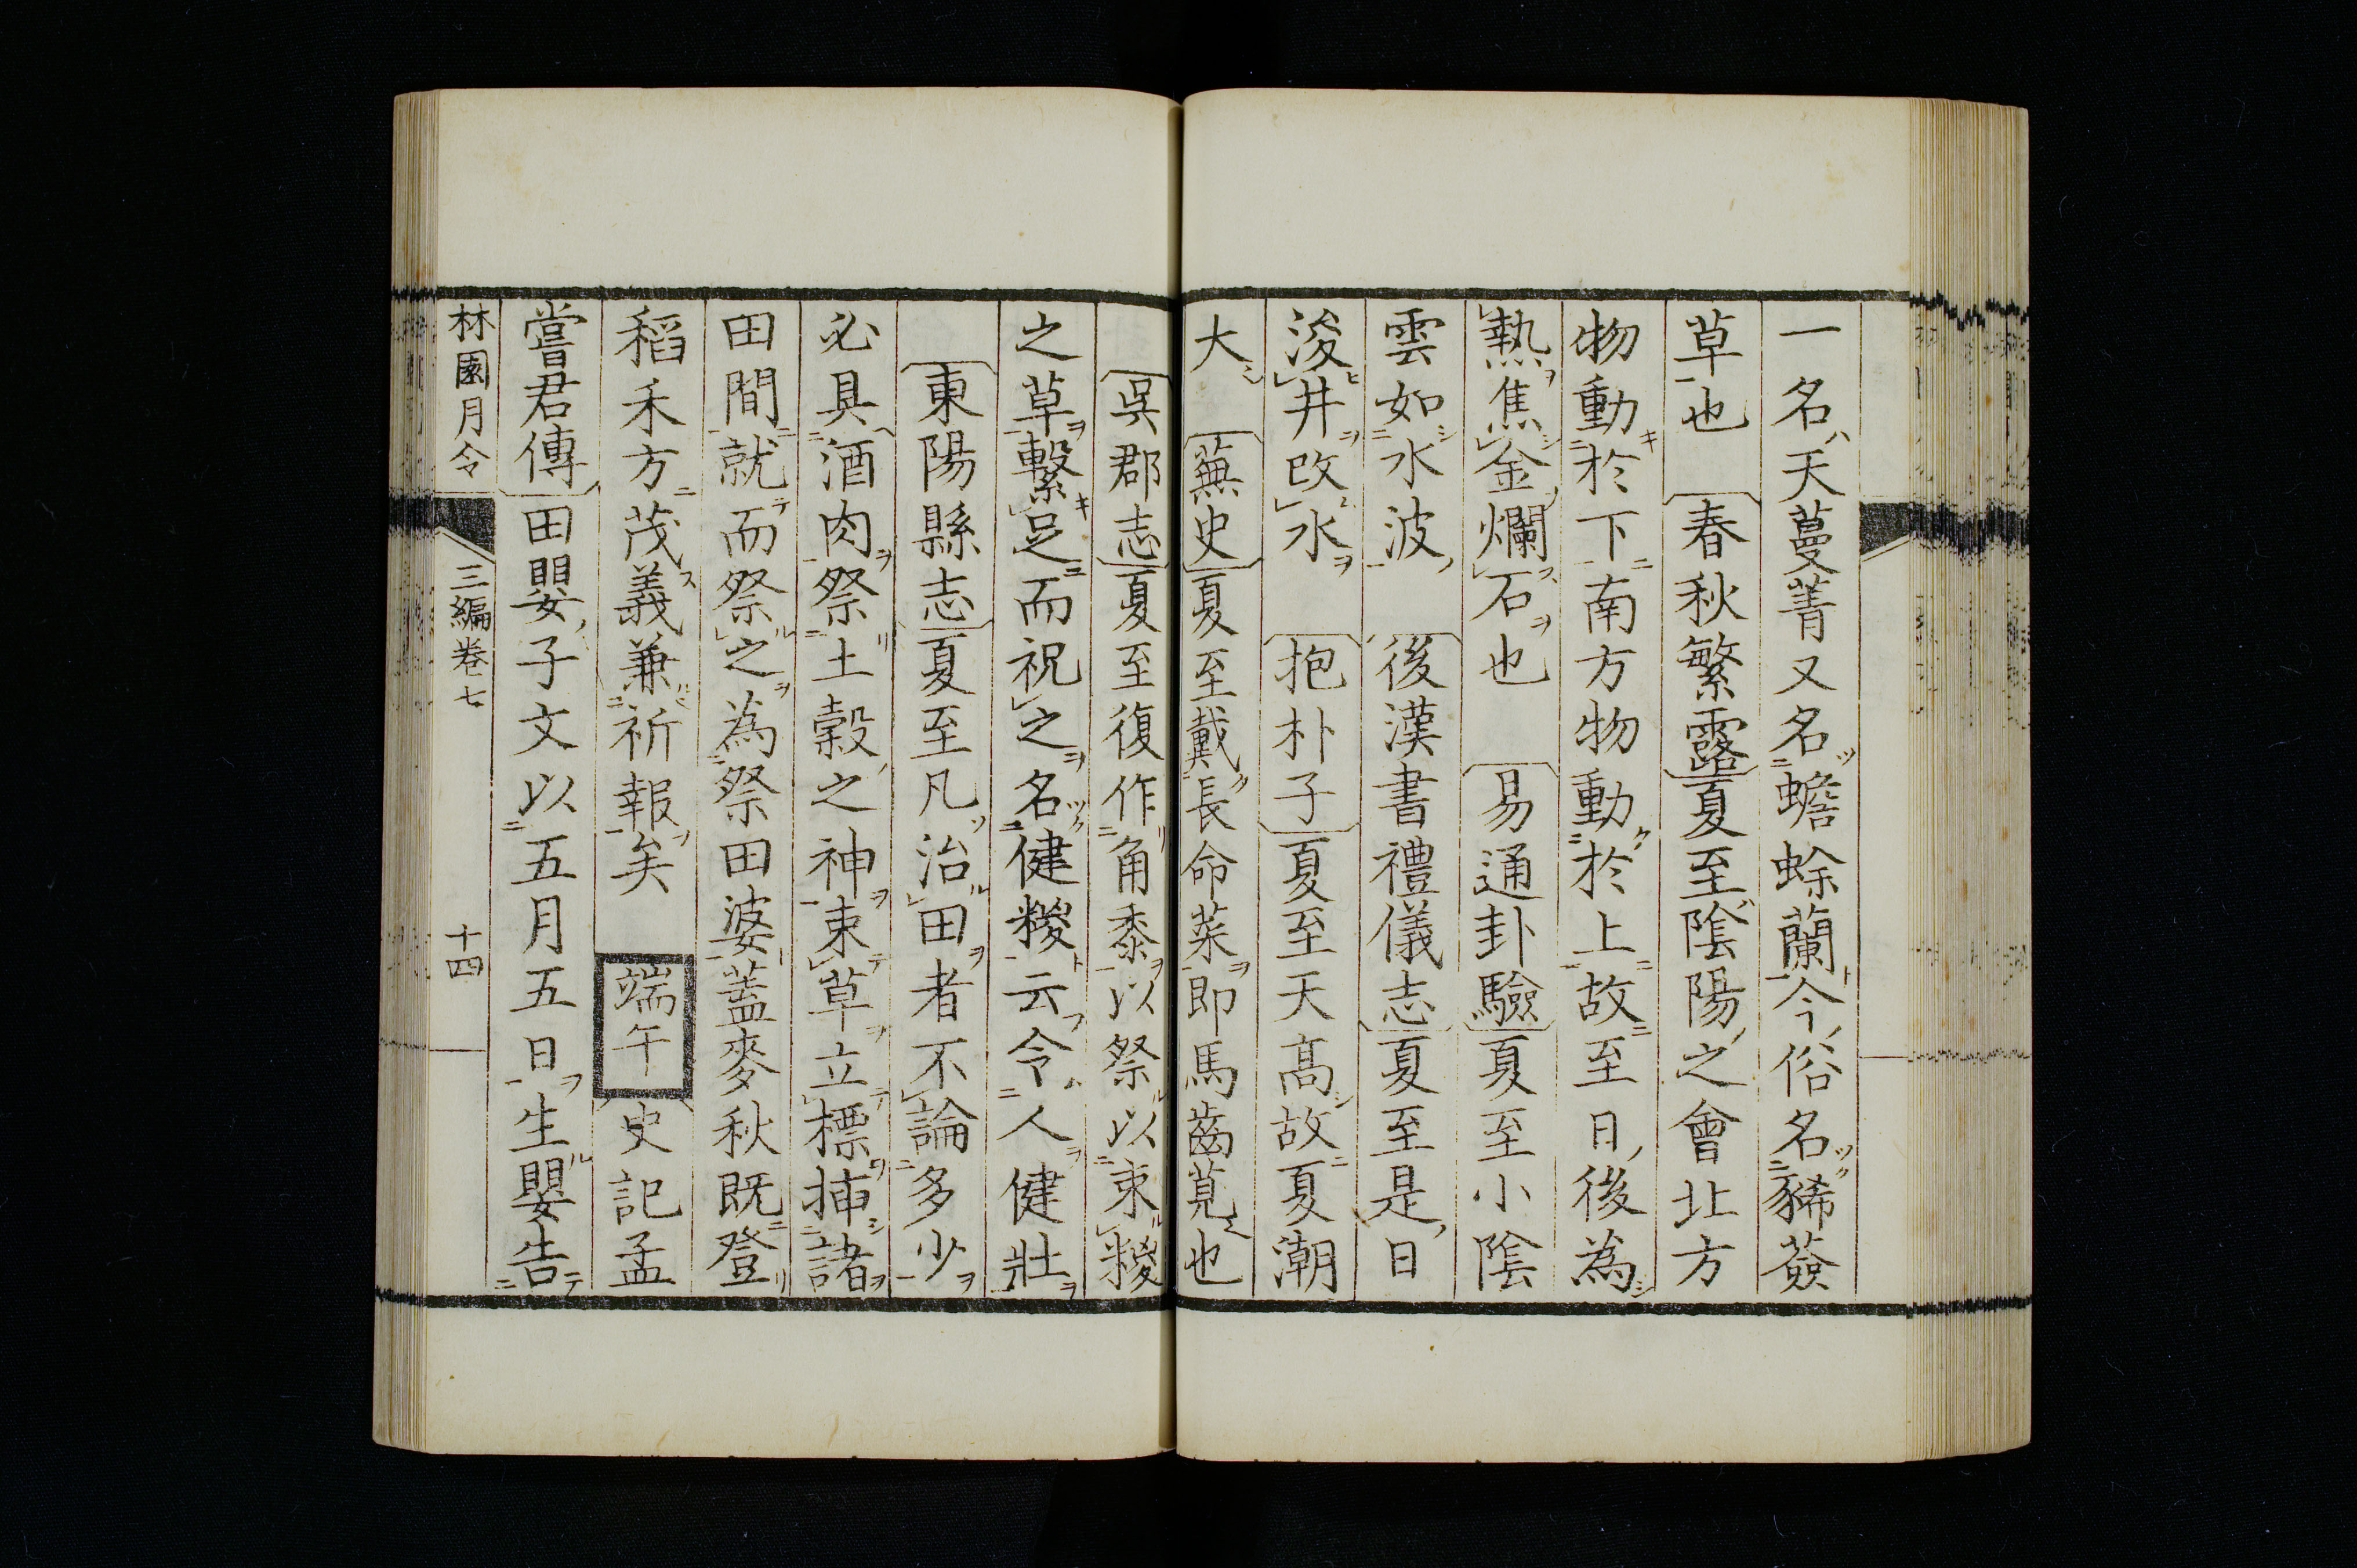 一名天蔓菁又名蟾蜍蘭今俗名豨薟
草也　春秋繁露夏至陰陽之會北方
物動於下南方物動於上故至日後為
熱焦金爛石也　易通卦驗夏至小陰
雲如水波　後漢書禮儀志夏至是日
浚井改水　抱朴子夏至天高故夏潮
大　蕪史夏至戴長命菜即馬齒莧也
吳郡志夏至復作角黍以祭以束糭
之草繫足而祝之名健糭云令人健壯
東陽縣志夏至凡治田者不論多少
必具酒肉祭土穀之神束草立標揷諸
田間就而祭之為祭田婆蓋麥秋既登
稻禾方茂義兼祈報矣　端午　史記孟
嘗君傳田嬰子文以五月五日生嬰告
林園月令　三編卷七　十四